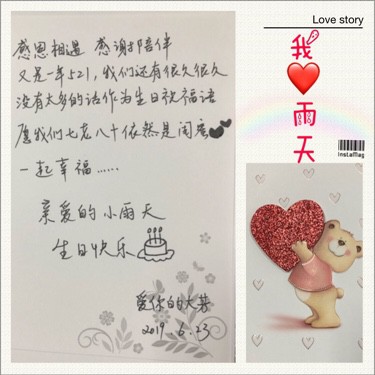 感恩相遇 感谢陪伴
又是一年521,我们还有很久很久
没有太多的话作为生日祝福语
愿我们七老八十依然是闺蜜
一起幸福......
亲爱的小雨天
生日快乐
爱你的大芳
2019 6.23
Love story
我❤️雨天
instaMag